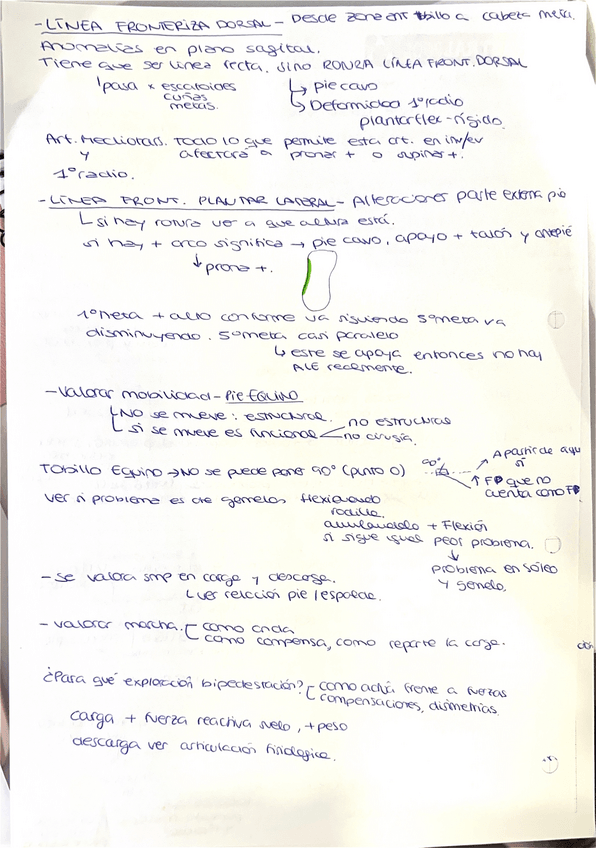 - LÍNEA FRONTERIZA DORSAL - Desde zona ant tobillo a cabeza meta.
Anomalías en plano sagital.
Tiene que ser línea recta, sino ROTURA LÍNEA FRONT. DORSAL
↳ pasa x escafoides
cuñas
metas.
↳ pie cavo
↳ Deformidad 1º radio
plantarflex - rígido.
Art. Mediotars. Todo lo que permite esta art. en inv/ev
y afectará a pronar + o supinar +.
1º radio.
- LÍNEA FRONT. PLANTAR LATERAL - Alteraciones parte externa pie
↳ si hay rotura ver a que altura está.
si hay + arco significa → pie cavo, apoyo + talón y antepié
↓ prona +.
1º meta + alto conforme va siguiendo 5º meta va
disminuyendo. 5º meta casi paralelo
↳ este se apoya entonces no hay
ALE realmente.
- Valorar mobilidad - PIE EQUINO
↳ NO se mueve: ESTRUCTURAL.
↳ si se mueve es funcional < no estructuras
no cirugía.
Tobillo Equino → NO se puede poner 90º (punto 0)
90º
A partir de aquí
sí
↑ FP que no
cuenta como FD
ver si problema es de gemelos flexionando
rodilla.
anulandolo + Flexión
si sigue igual peor problema.
↓
problema en sóleo
y gemelo.
- Se valora smp en carga y descarga.
↳ ver relación pie / espalda.
- Valorar marcha. [ como anda
como compensa, como reparte la carga.
¿Para qué exploración bipedestación? [ como actúa frente a fuerzas
compensaciones, disimetrías
carga + fuerza reactiva suelo, + peso
descarga ver articulación fisiológica.